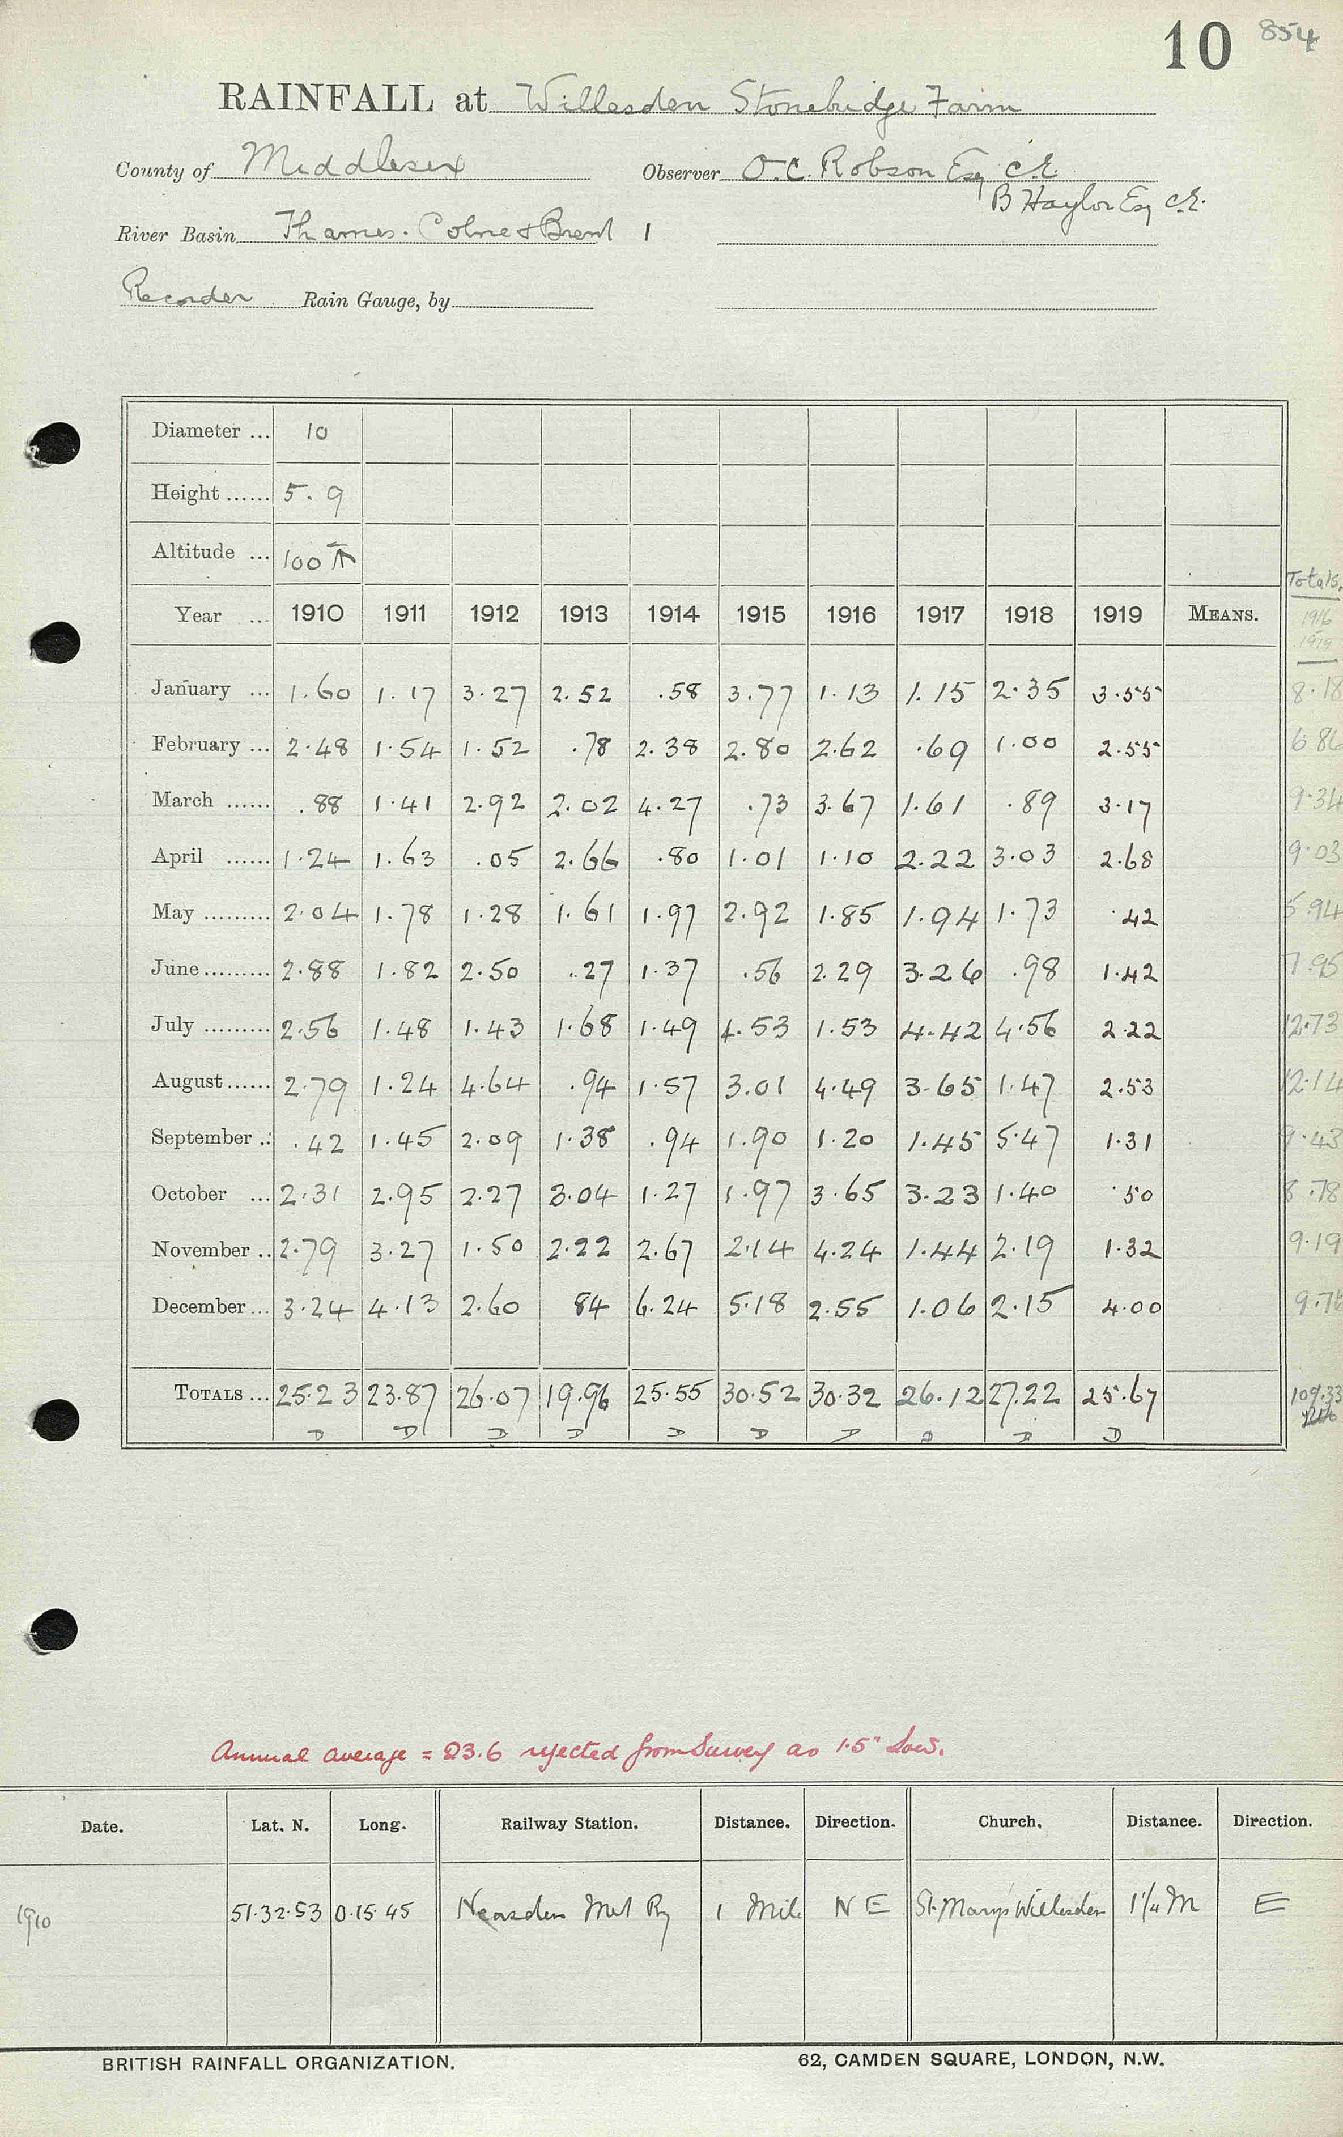 10 854
RAINFALL at Willesden Stonebridge Farm
County of Middlesex Observer O.C. Robson Esq C.E
B Haylor Esq C.E.
River Basin Thames. Colne & Brent 1
Recorder Rain Gauge, by
Diameter ... 10
Height ...... 5. 9
Altitude ... 100
Totals.
Year ... 1910 1911 1912 1913 1914 1915 1916 1917 1918 1919 MEANS. 1916
1919
January ... 1.60 1.17 3.27 2.52 .58 3.77 1.13 1.15 2.35 3.55 8.18
February ... 2.48 1.54 1.52 .78 2.38 2.80 2.62 .69 1.00 2.55 6.86
March ...... .88 1.41 2.92 2.02 4.27 .73 3.67 1.61 .89 3.17 9.34
April ...... 1.24 1.63 .05 2.66 .80 1.01 1.10 2.22 3.03 2.68 9.03
May ......... 2.04 1.78 1.28 1.61 1.97 2.92 1.85 1.94 1.73 .42 5.94
June ......... 2.88 1.82 2.50 .27 1.37 .56 2.29 3.26 .98 1.42 7.95
July ......... 2.56 1.48 1.43 1.68 1.49 4.53 1.53 4.42 4.56 2.22 12.73
August ...... 2.79 1.24 4.64 .94 1.57 3.01 4.49 3.65 1.47 2.53 12.14
September .. .42 1.45 2.09 1.38 .94 1.90 1.20 1.45 5.47 1.31 9.43
October ... 2.31 2.95 2.27 3.04 1.27 1.97 3.65 3.23 1.40 .50 8.78
November .. 2.79 3.27 1.50 2.22 2.67 2.14 4.24 1.44 2.19 1.32 9.19
December ... 3.24 4.13 2.60 84 6.24 5.18 2.55 1.06 2.15 4.00 9.76
TOTALS ... 25.23 23.87 26.07 19.96 25.55 30.52 30.32 26.12 27.22 25.67 109.33
D D D D D D D D D D
Annual average = 23.6 rejected from Survey as 1.5" low.
Date. Lat. N. Long. Railway Station. Distance. Direction. Church. Distance. Direction.
1910 51.32.53 0.15 45 Neasden Met Ry 1 Mile N E St. Mary's Willesden 1 1/4 M E
BRITISH RAINFALL ORGANIZATION. 62, CAMDEN SQUARE, LONDON, N.W.